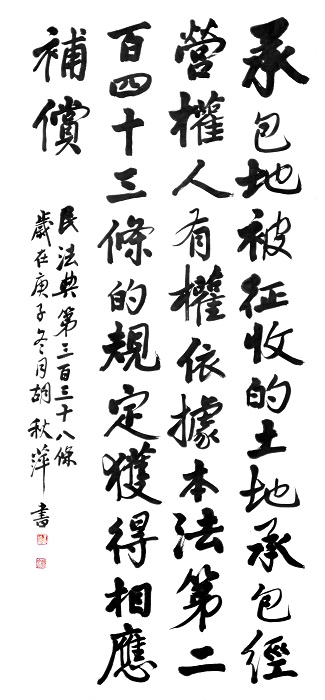 承包地被征收的土地承包經
營權人有權依據本法第二
百四十三條的規定獲得相應
補償
民法典第三百三十八條
歲在庚子冬月胡秋萍書